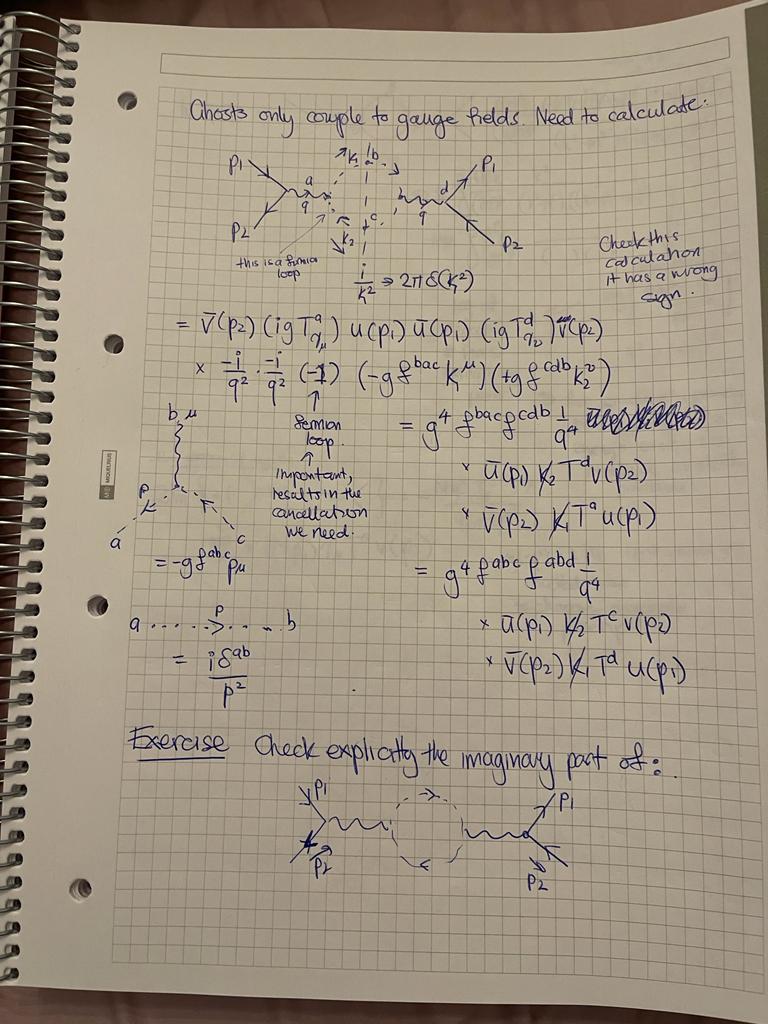 Ghosts only couple to gauge fields. Need to calculate:
p1 a q k1 b d p1
p2 k2 c q p2
this is a fermion
loop
i/k² → 2πδ(k²)
Check this
calculation
it has a wrong
sign.
= v̄(p2) (igTᵃγμ) u(p1) ū(p1) (igTᵈγν) v(p2)
× -i/q² · -i/q² (-1) (-g fᵇᵃᶜ k₁^μ) (+g fᶜᵈᵇ k₂^ν)
↑
fermion
loop.
↑
important,
results in the
cancellation
we need.
= g⁴ fᵇᵃᶜ fᶜᵈᵇ 1/q⁴
× ū(p1) k̸2 Tᵈ v(p2)
× v̄(p2) k̸1 Tᵃ u(p1)
b μ
p
a c
= -g fᵃᵇᶜ pμ
= g⁴ fᵃᵇᶜ fᵃᵇᵈ 1/q⁴
× ū(p1) k̸2 Tᶜ v(p2)
× v̄(p2) k̸1 Tᵈ u(p1)
a ..... p ..... b
= iδᵃᵇ/p²
Exercise Check explicitly the imaginary part of:
p1 p1
p2 p2
MIQUELRIUS